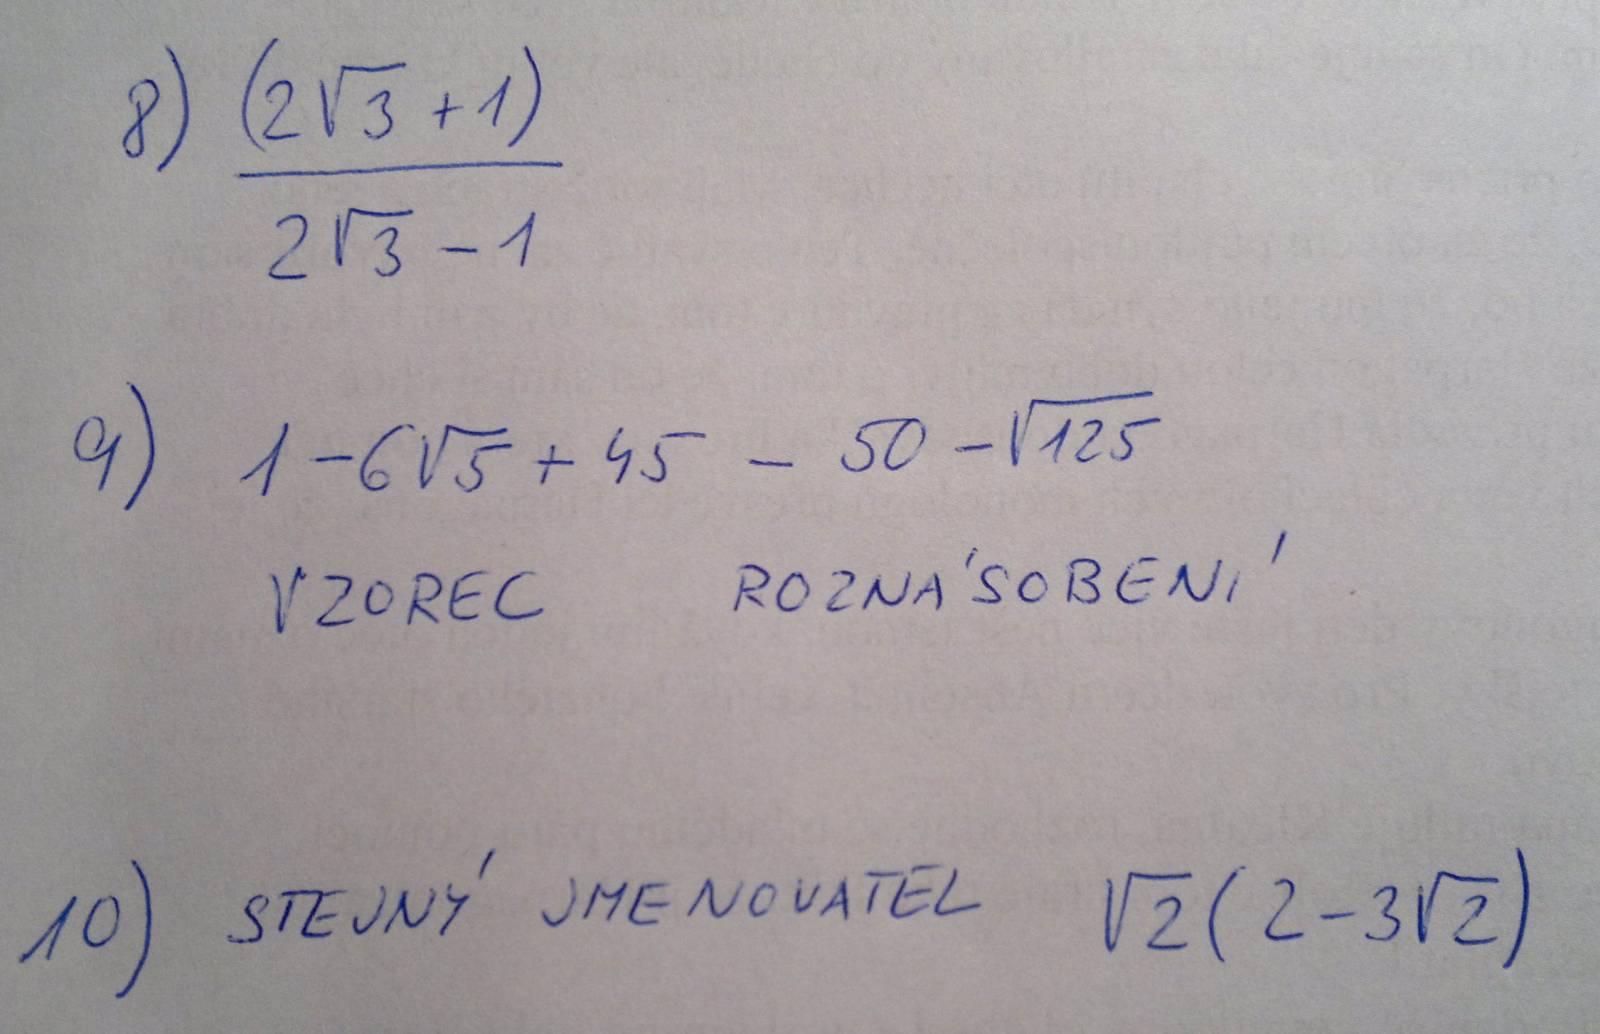 8) (2√3 + 1)
2√3 - 1
9) 1 - 6√5 + 45 - 50 - √125
VZOREC ROZNÁSOBENÍ
10) STEJNÝ JMENOVATEL √2 ( 2 - 3√2 )